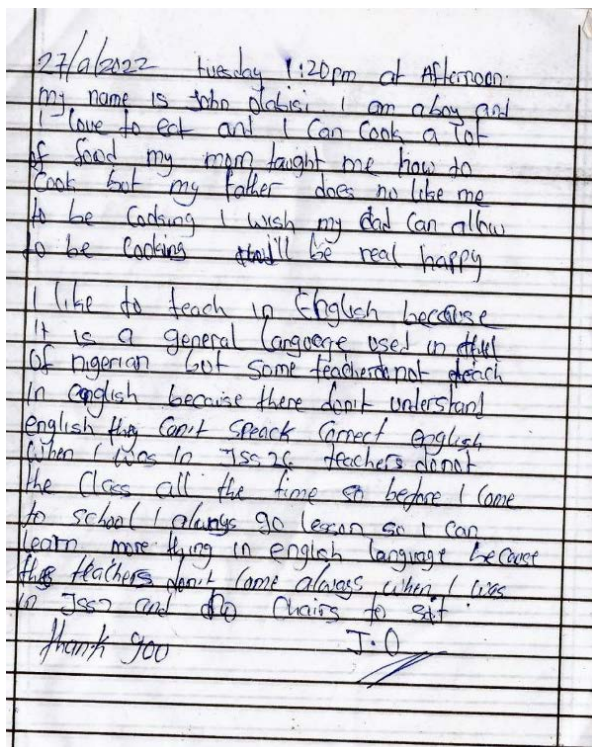 27/9/2022 tuesday 1:20pm at Afternoon.
my name is John Olabisi I am a boy and
I love to eat and I can cook a lot
of food my mom taught me how to
cook but my father does no like me
to be cooking I wish my dad can allow
to be cooking I will be real happy
I like to teach in English because
it is a general language used in
of nigerian but some teacher do not teach
in english because there don't understand
english they can't speack correct english
when I was in Jss 2C teachers do not
the class all the time so before I come
to school I always go lesson so I can
learn more thing in english language because
the teachers don't come always when I was
in Jss2 and no chairs to sit
thank you J.O